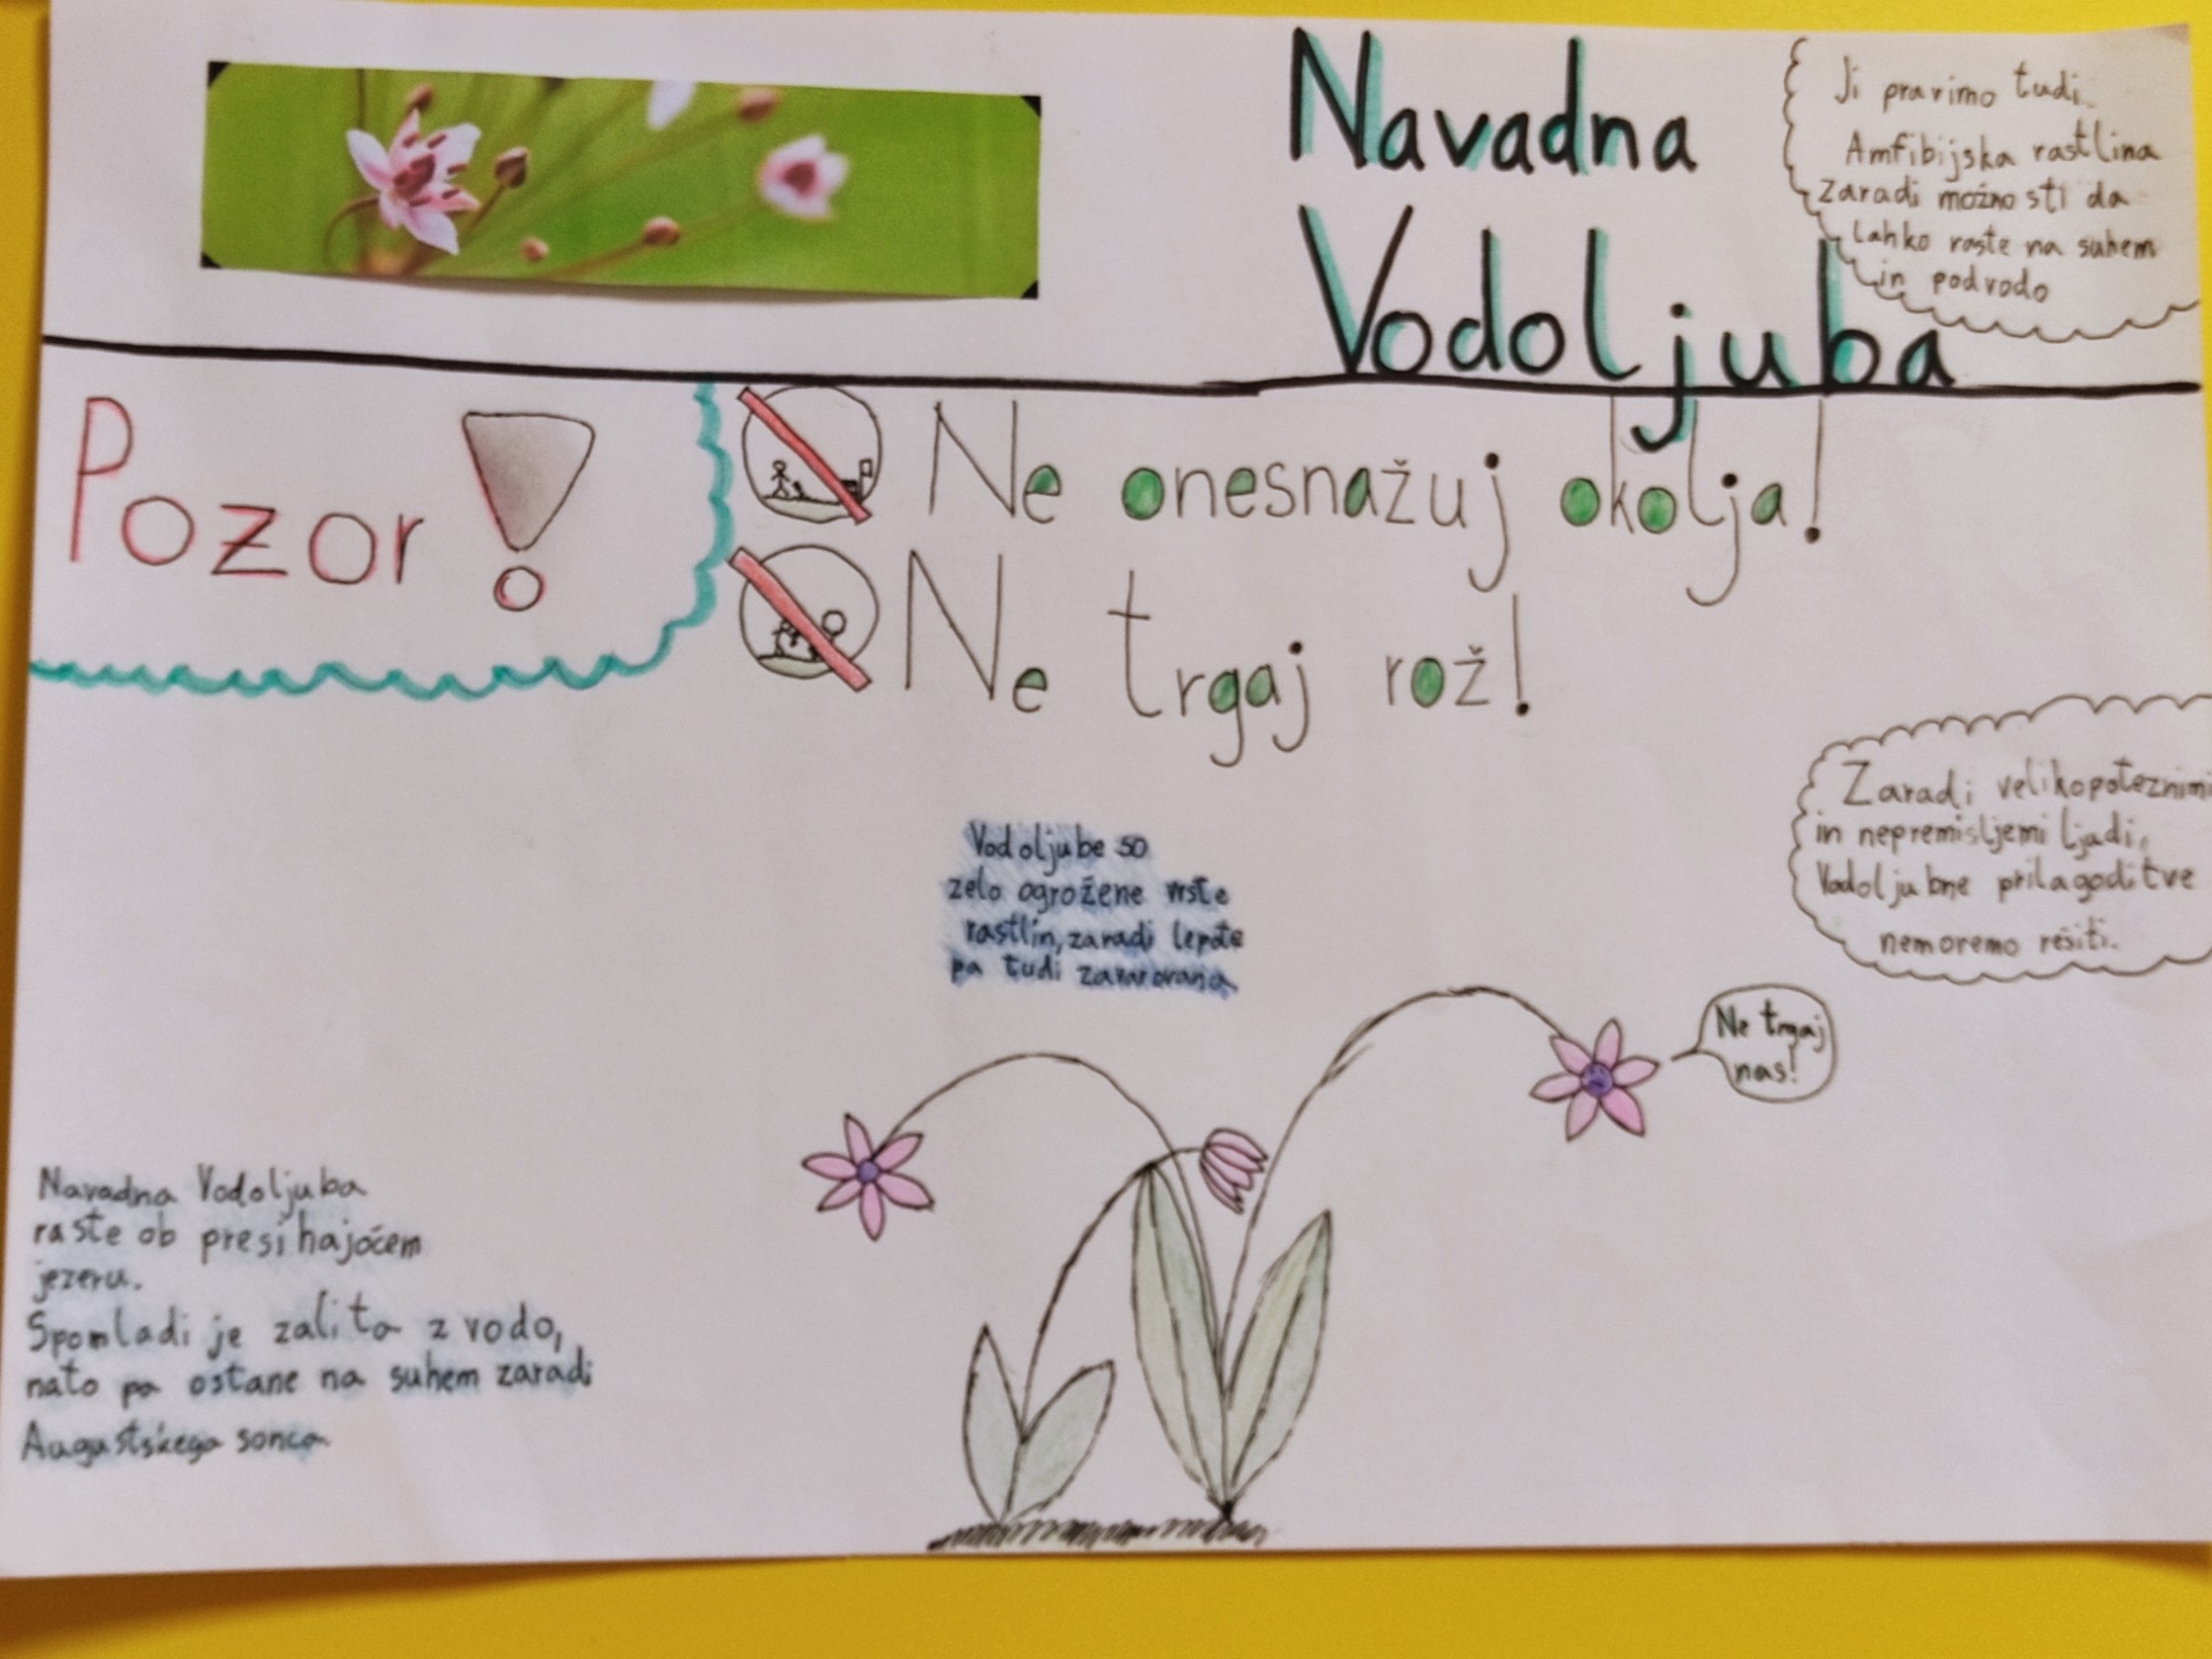 Navadna
Vodoljuba
Ji pravimo tudi
Amfibijska rastlina
zaradi možnosti da
lahko raste na suhem
in podvodo
Pozor!
Ne onesnažuj okolja!
Ne trgaj rož!
Vodoljube so
zelo ogrožene vrste
rastlin, zaradi lepote
pa tudi zavarovana
Zaradi velikopoteznimi
in nepremisljemi ljudi,
Vodoljubne prilagoditve
nemoremo rešiti.
Ne trgaj
nas!
Navadna Vodoljuba
raste ob presihajočem
jezeru.
Spomladi je zalita z vodo,
nato pa ostane na suhem zaradi
Augustskega sonca